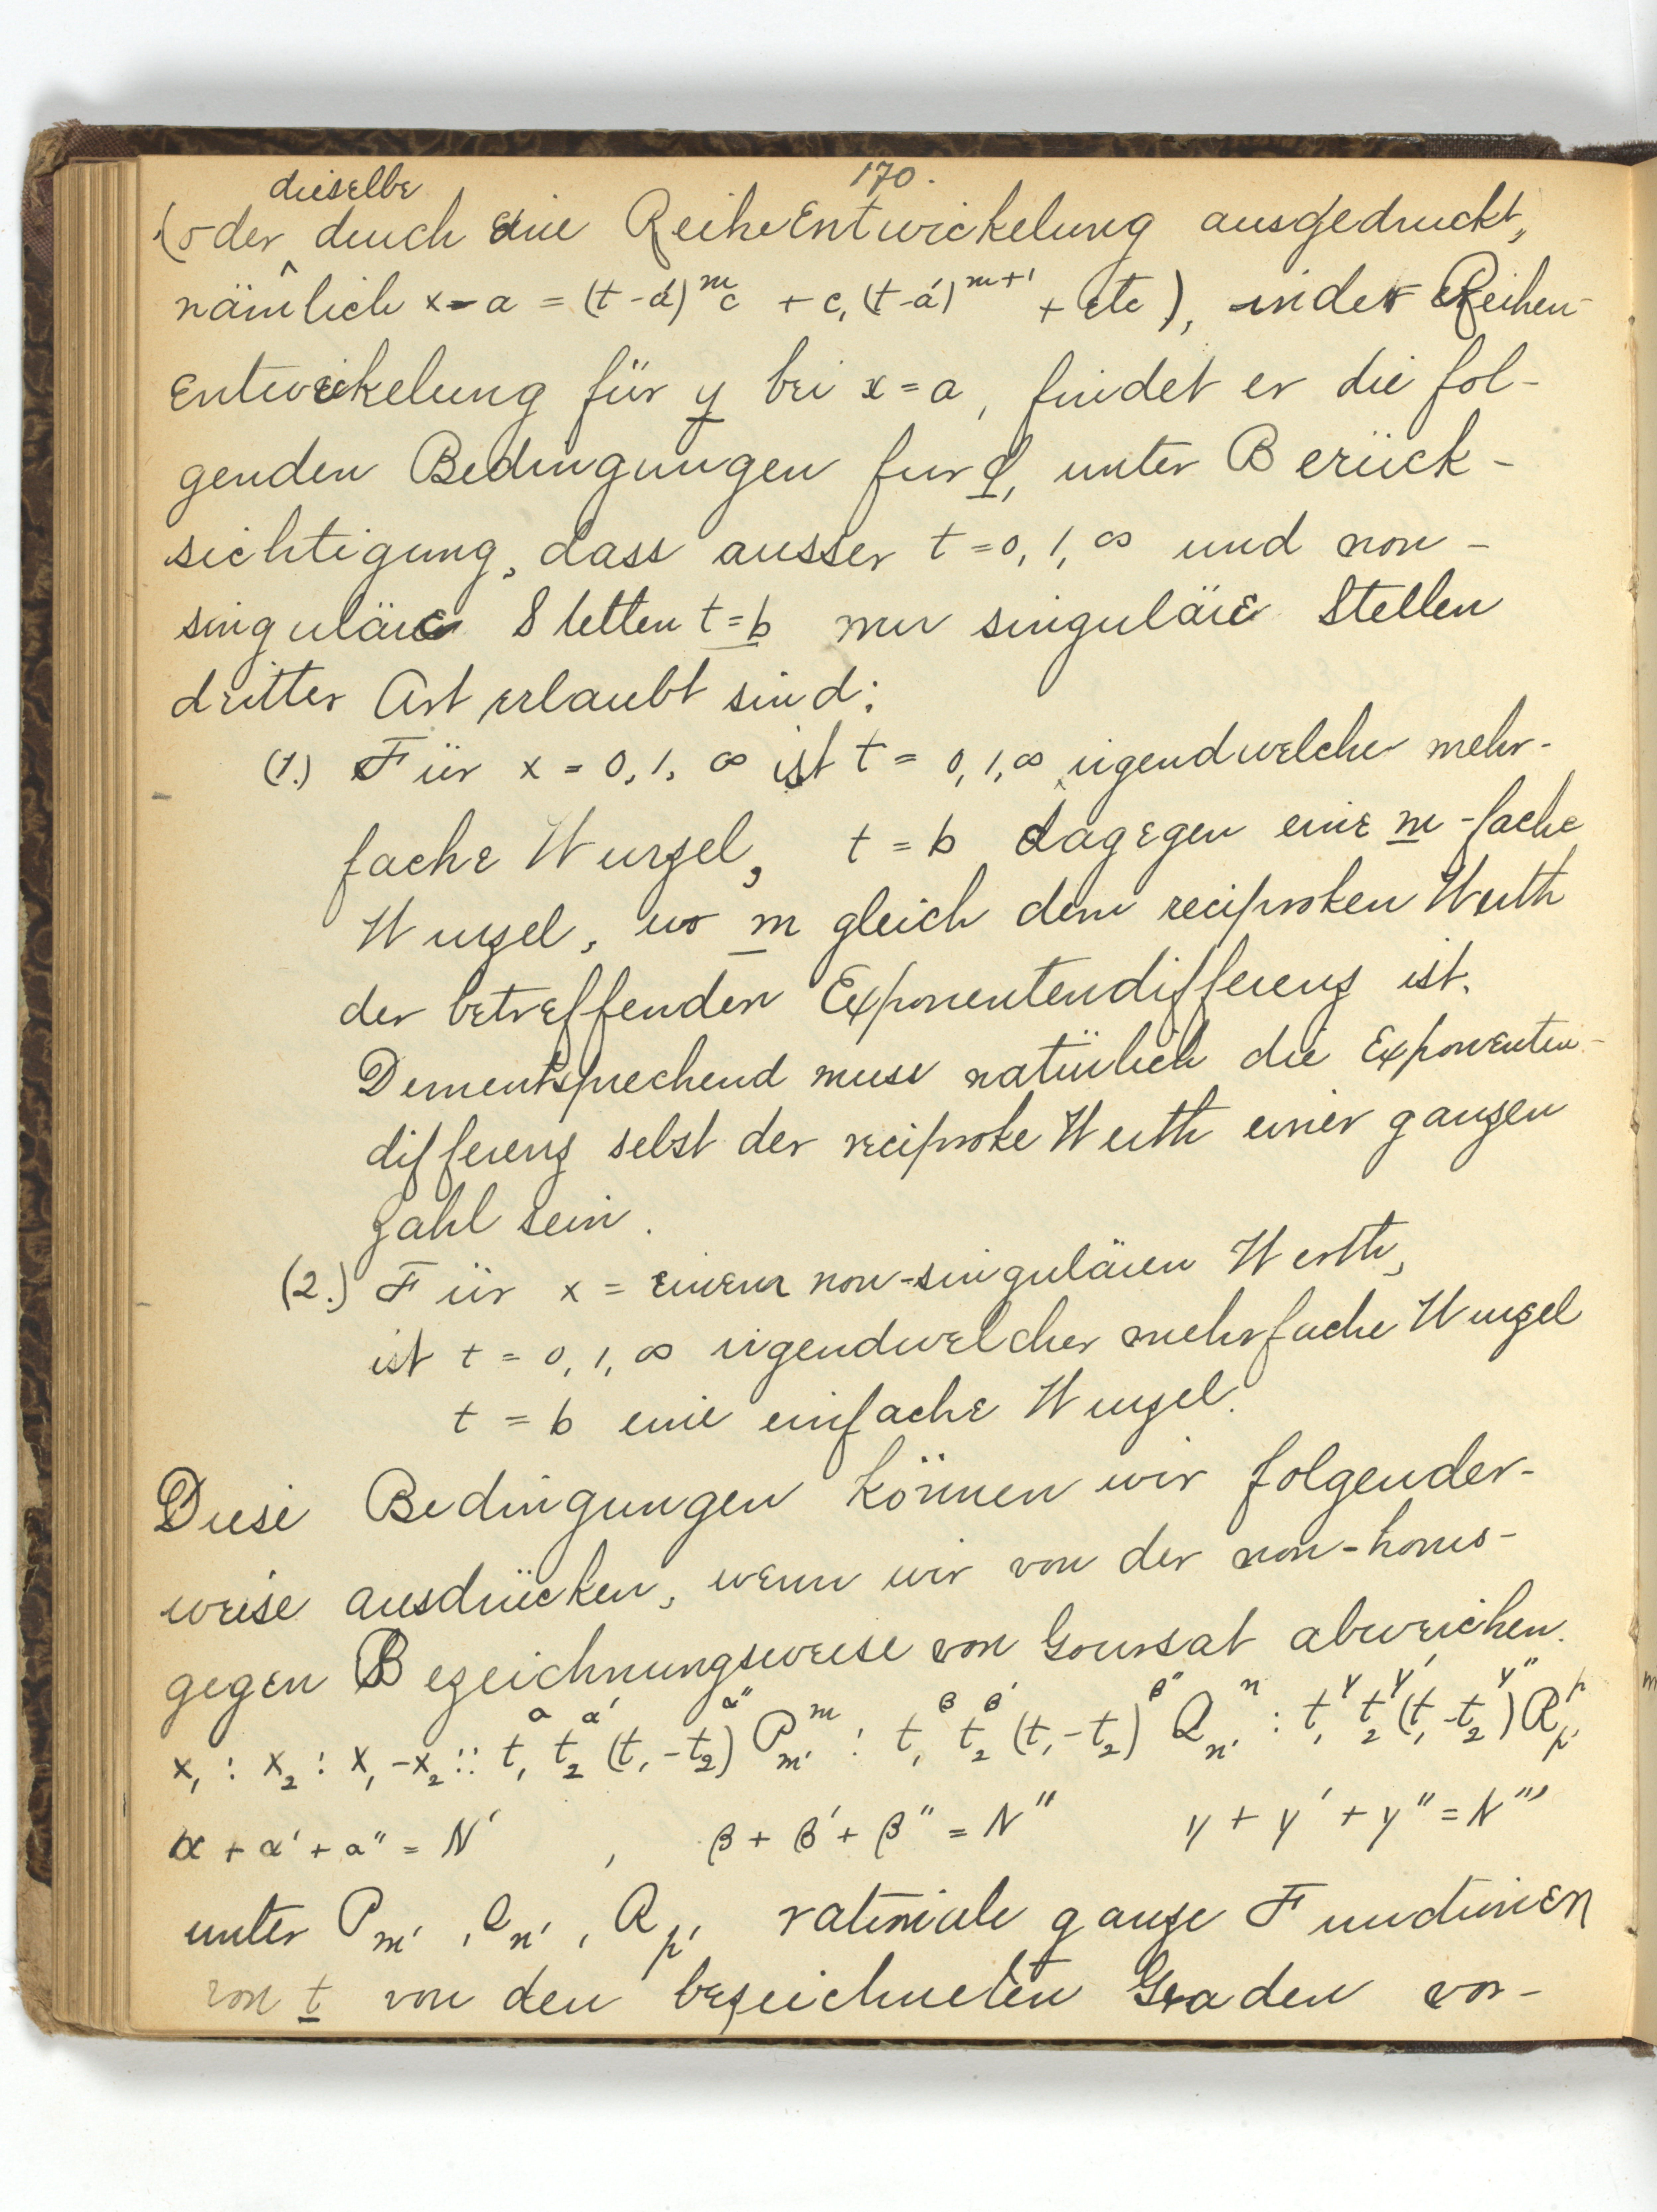 170.
dieselbe
(oder durch eine ReiheEntwickelung ausgedruckt,
nämlich x-a = (t-a')^m c + c, (t-a')^{m+1} + etc), in der Reihen-
entwickelung für y bei x = a, findet er die fol-
genden Bedingungen fur φ, unter Berück-
sichtigung, dass ausser t = 0, 1, ∞ und non-
singuläre Stellen t = b nur singuläre Stellen
dritter Art erlaubt sind:
(1.) Für x = 0, 1, ∞ ist t = 0, 1, ∞ irgendwelcher mehr-
fache Wurzel, t = b dagegen eine m-fache
Wurzel, wo m gleich dem reciproken Werth
der betreffenden Exponentendifferenz ist.
Dementsprechend muss natürlich die Exponenten-
differenz selbst der reciproke Werth einer ganzen
Zahl sein.
(2.) Für x = einem non-singulären Werth,
ist t = 0, 1, ∞ irgendwelcher mehrfache Wurzel
t = b eine einfache Wurzel.
Diese Bedingungen können wir folgender-
weise ausdrücken, wenn wir von der non-homo-
gegen Bezeichnungsweise von Goursat abweichen.
x₁ : x₂ : x₁-x₂ :: t₁^α t₂^α' (t₁-t₂)^α'' P_m'^m : t₁^β t₂^β' (t₁-t₂)^β'' Q_n'^n : t₁^γ t₂^γ' (t₁-t₂)^γ'' R_p'^p
α + α' + α'' = N' , β + β' + β'' = N'' γ + γ' + γ'' = N'''
unter P_m', Q_n', R_p' rationale ganze Functionen
von t von den bezeichneten Graden vor-